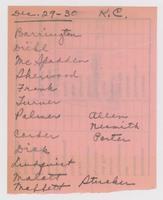 Dec. 29-30 K.C.
Barrington
Diehl
Mc Spadden
Sherwood
Frank
Turner
Palmer Allen
Nesmith
Carder Porter
Dick
Lundquist
Malott
Moffett Stucker